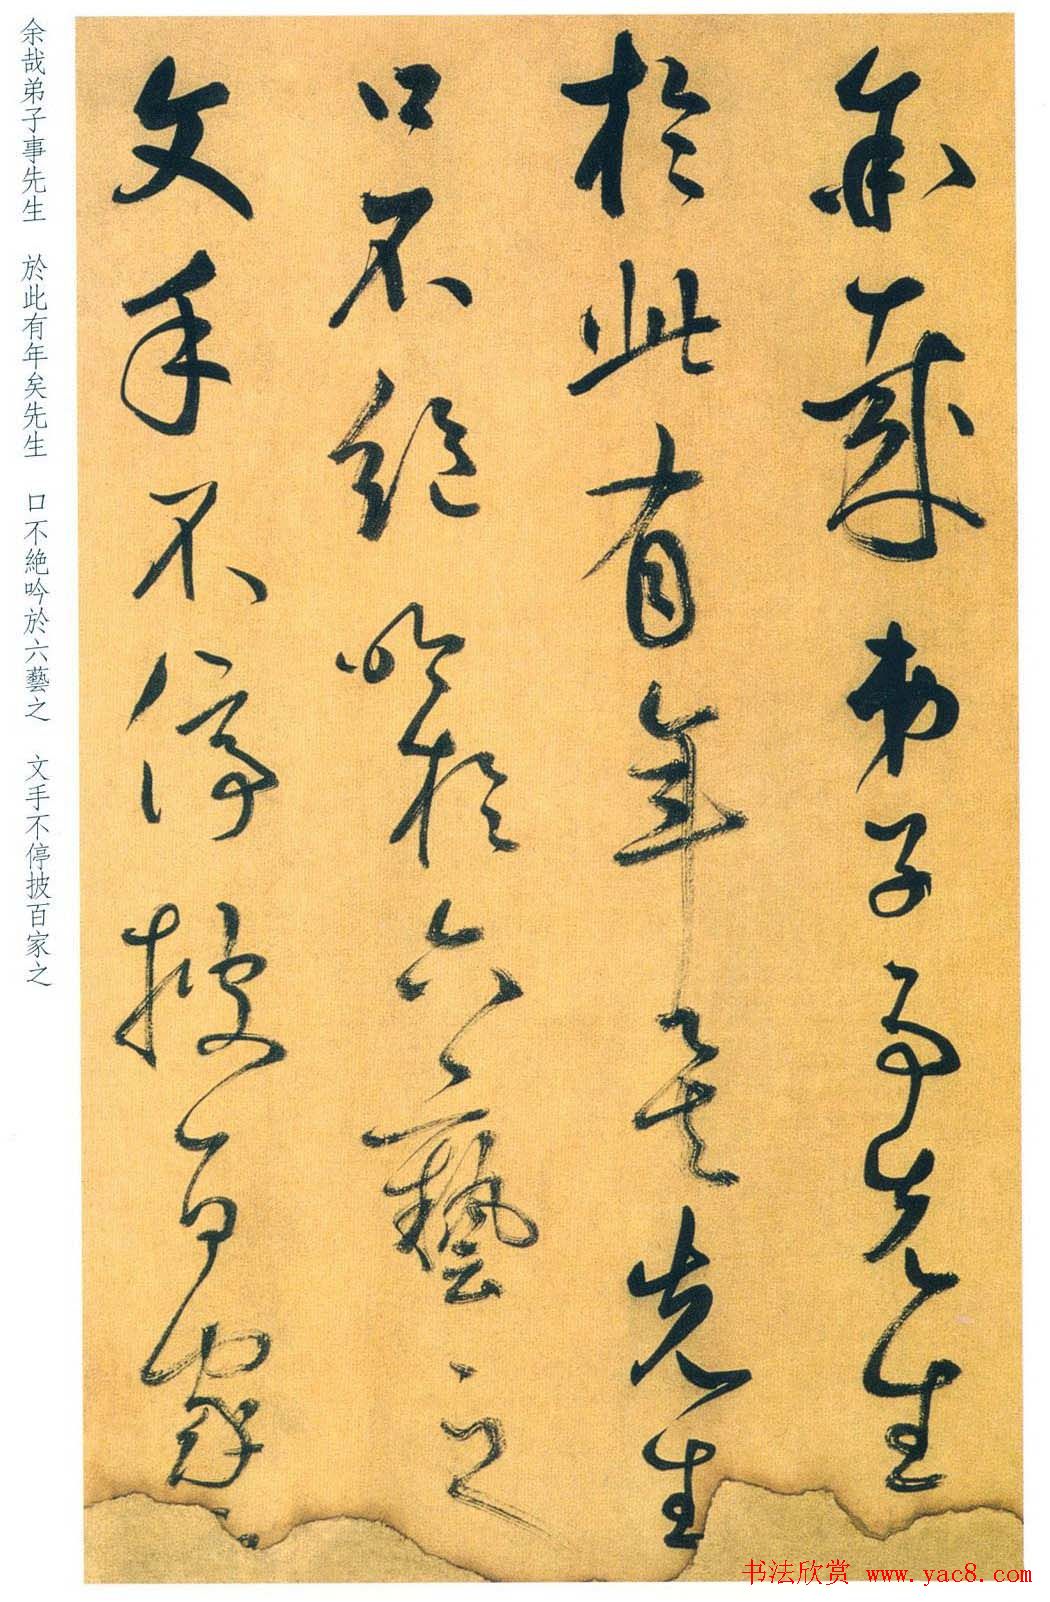 余哉弟子事先生
於此有年矣先生
口不絶吟於六藝之
文手不停披百家之
余哉弟子事先生　於此有年矣先生　口不絶吟於六藝之　文手不停披百家之
书法欣赏 www.yac8.com